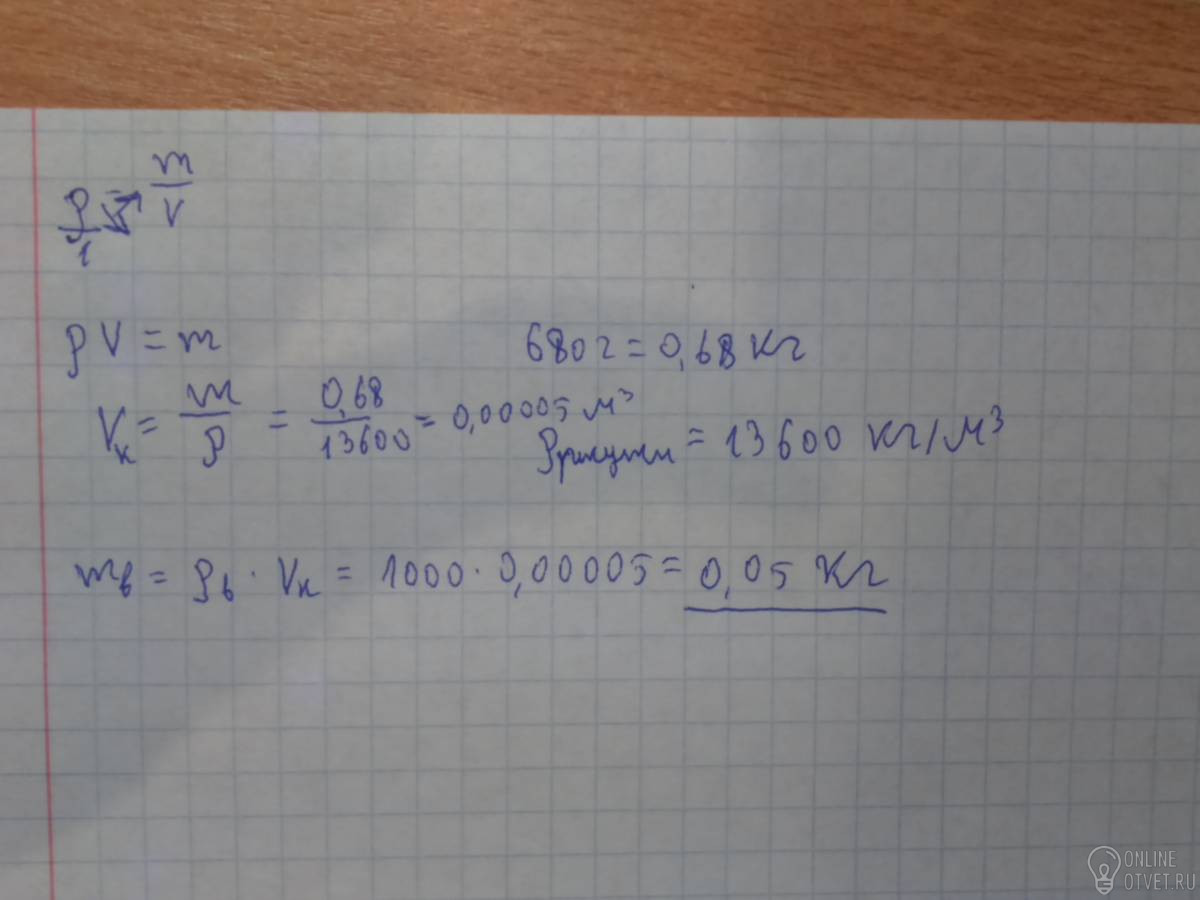 ρ/1 = m/V
ρV = m
680г = 0,68 кг
Vк = m/ρ = 0,68/13600 = 0,00005 м³
ρртути = 13600 кг/м³
mв = ρв · Vк = 1000 · 0,00005 = 0,05 кг
ONLINE
OTVET.RU